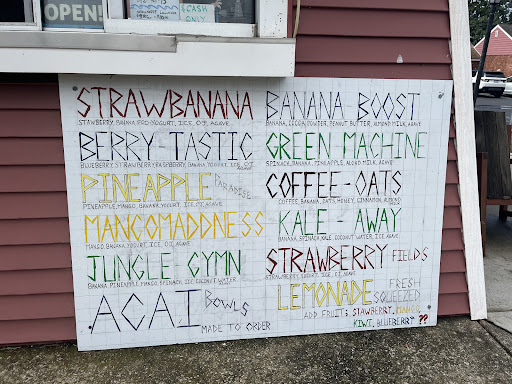 OPEN
CASH
ONLY
STRAWBANANA
STRAWBERRY, BANANA, FRO-YOGURT, ICE, OJ, AGAVE
BERRY-TASTIC
BLUEBERRY, STRAWBERRY, RASPBERRY, BANANA, YOGURT, ICE, OJ
AGAVE
PINEAPPLE PARADISE
PINEAPPLE, MANGO, BANANA, YOGURT, ICE, OJ, AGAVE
MANGOMADDNESS
MANGO, BANANA, YOGURT, ICE, OJ, AGAVE
JUNGLE GYMN
BANANA, PINEAPPLE, MANGO, SPINACH, ICE, COCONUT WATER
ACAI BOWLS
MADE TO ORDER
BANANA-BOOST
BANANA, COCOA POWDER, PEANUT BUTTER, ALMOND MILK, AGAVE
GREEN MACHINE
BANANA, SPINACH, PINEAPPLE, ALMOND MILK, AGAVE
COFFEE-OATS
COFFEE, BANANA, OATS, HONEY, CINNAMON, ALMOND
KALE-AWAY
BANANA, SPINACH, KALE, COCONUT WATER, ICE, AGAVE
STRAWBERRY FIELDS
STRAWBERRY, YOGURT, ICE, OJ, AGAVE
LEMONADE FRESH SQUEEZED
ADD FRUIT; STAWBERRY, MANGO,
KIWI, BLUEBERRY ??